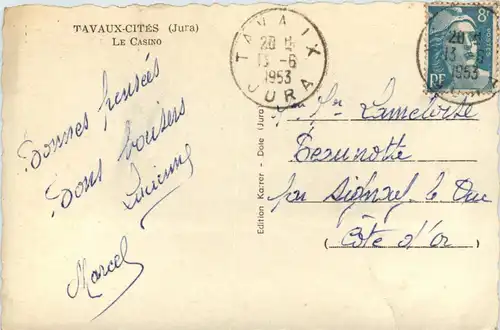 TAVAUX-CITÉS (Jura)
LE CASINO
TAVAUX
20 H
13 -6
1953
JURA
20 H
13
1953
8F
RF
Bonnes pensées
Bons baisers
Lucienne
Marcel
Edition Karrer - Dole (Jura)
Lamelotte
par Aignay le Duc
(Côte d'or)